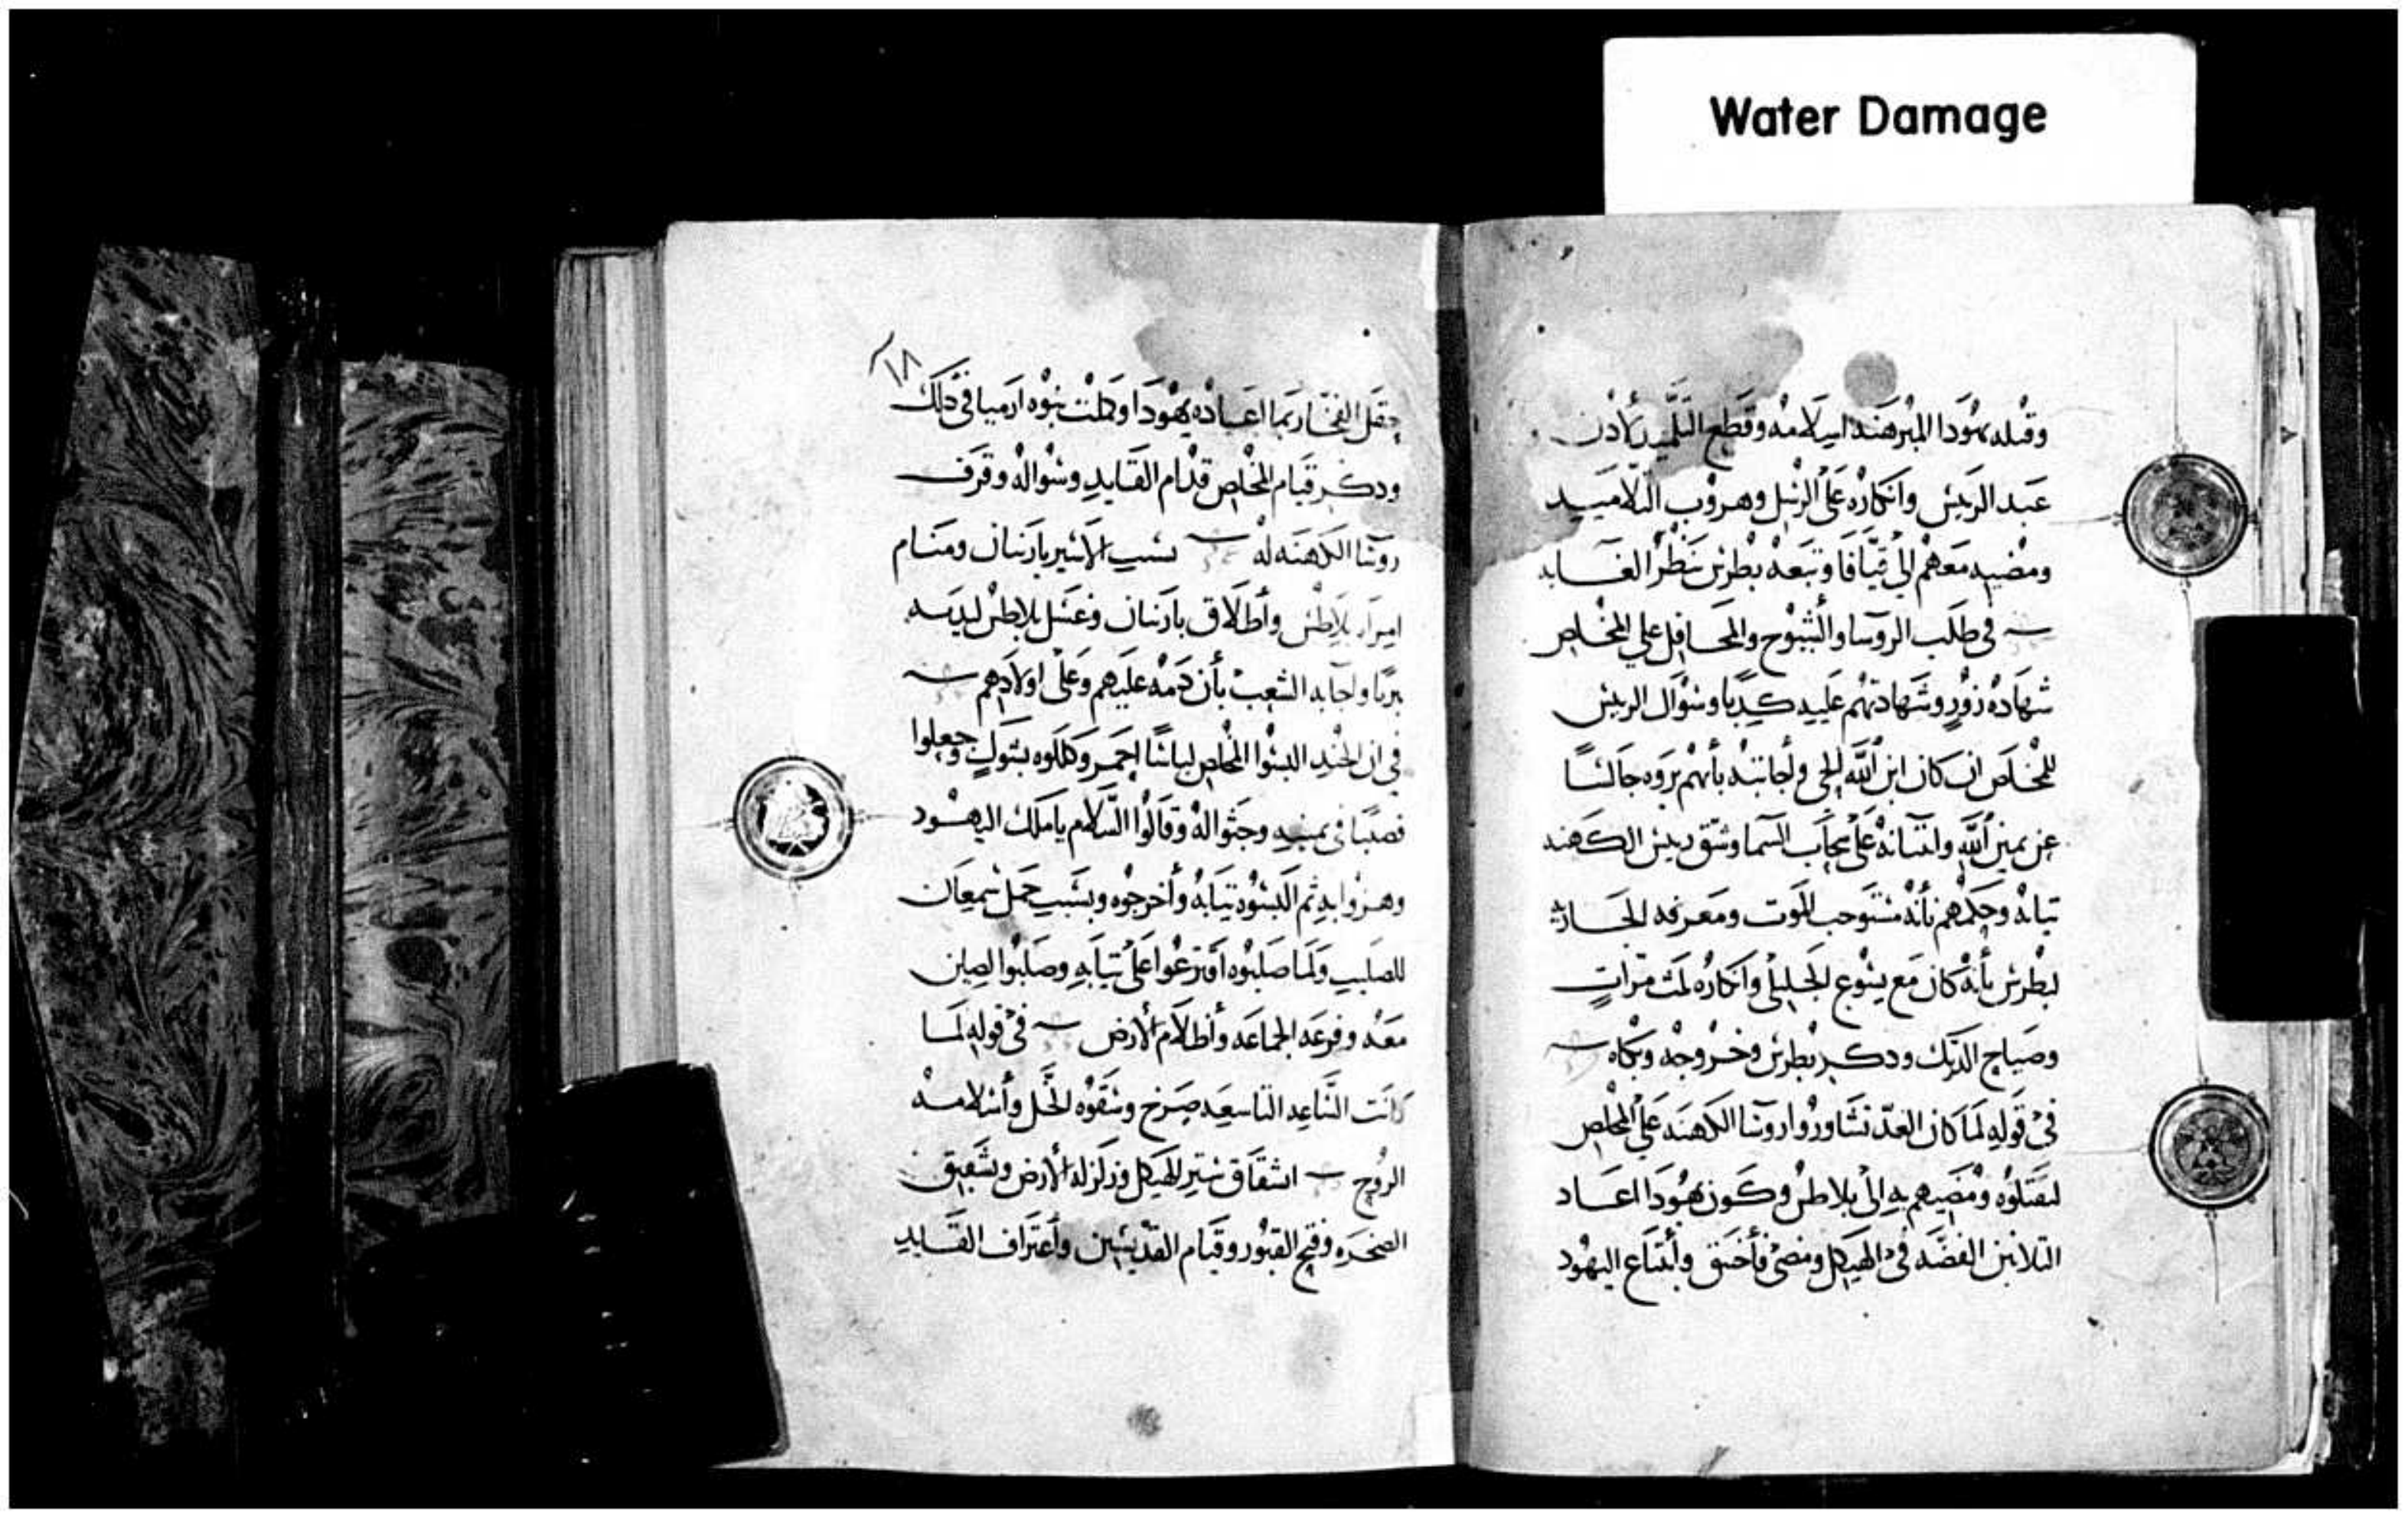 Water Damage
وقبله يهودا المبرهنه اسلامه وقطع التلميد لأدن
عبد الريس وانكاره على الرسل وهروب التلاميد
ومضيه معهم الي قيافا وتبعه بطرس ينظر العابه
في طلب الروسا والشيوخ والمحافل علي المخلص
شهاده زور وشهادتهم عليه كدبا وسوال الريس
للمخلص ان كان ابن الله الحي واجابته بأنهم يروه جالسا
عن يمين الله واتيانه على سحاب السما وشق ريس الكهنه
تيابه وحكمهم بأنه مستوجب الموت ومعرفه الجاريه
لبطرس بأنه كان مع يسوع الجليلي وانكاره تلت مرات
وصياح الديك ودكر بطرس وخروجه وبكاه
في قوله لما كان الغد تشاوروا روسا الكهنه علي المخلص
ليقتلوه ومضيهم به الى بلاطس وكون يهودا اعاد
التلاتين الفضه في الهيكل ومضى فأختنق وابتياع اليهود
١٨
حقل الفخار بما اعاده يهودا وكملت نبوه ارميا في دلك
ودكر قيام المخلص قدام القايد وسواله وقرف
روسا الكهنه له بسبب الاسير بارنبان ومنام
امراه بلاطس وأطلاق بارنبان وغسل بلاطس ليديه
بريا واجابه الشعب بأن دمه عليهم وعلى اولادهم
في ان الجند البسوا المخلص لباسا احمر وكللوه بشوك وجعلوا
قصبا في يمينه وجثوا له وقالوا السلام ياملك اليهود
وهزوا به ثم البسوه تيابه وأخرجوه وبسبب حمل سمعان
للصليب ولما صلبوه اقترعوا على تيابه وصلبوا لصين
معه وفرعه الجماعه وأظلام الأرض في قوله لما
كانت الساعه التاسعه صرخ وسقوه الخل وأسلامه
الروح انشقاق ستر الهيكل وزلزله الأرض وتشقيق
الصخره وفتح القبور وقيام القديسين وأعتراف القايد